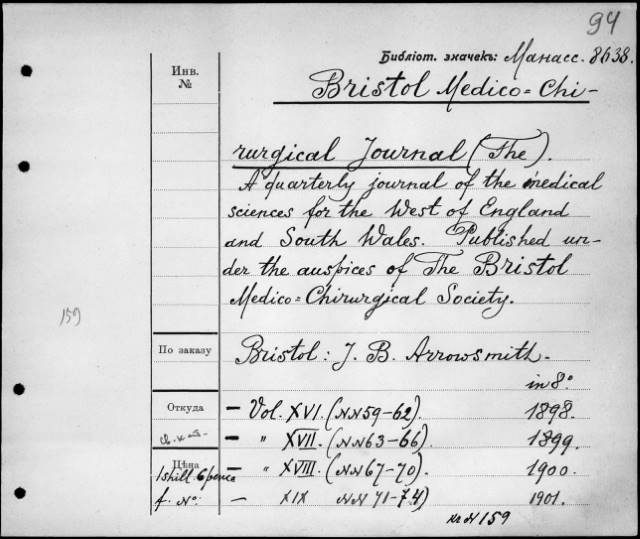 94
Библіот. значекъ: Манасс. 8638.
Инв. №
Bristol Medico=Chi-
rurgical Journal (The).
A quarterly journal of the medical
sciences for the West of England
and South Wales. Published un-
der the auspices of The Bristol
Medico=Chirurgical Society.
159
По заказу
Bristol: J. B. Arrowsmith.
in 8°
Откуда
– Vol. XVI. (NN 59–62). 1898.
– " XVII. (NN 63–66). 1899.
Цѣна
1 shill. 6 pence
– " XVIII. (NN 67–70). 1900.
f. No:
– XIX NN 71–74) 1901.
N 159